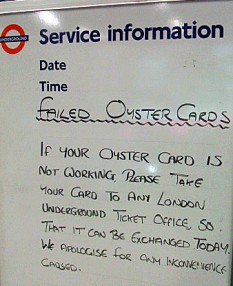 UNDERGROUND
Service information
Date
Time
FAILED OYSTER CARDS
IF YOUR OYSTER CARD IS
NOT WORKING, PLEASE TAKE
YOUR CARD TO ANY LONDON
UNDERGROUND TICKET OFFICE, SO
THAT IT CAN BE EXCHANGED TODAY.
WE APOLOGISE FOR ANY INCONVENIENCE
CAUSED.